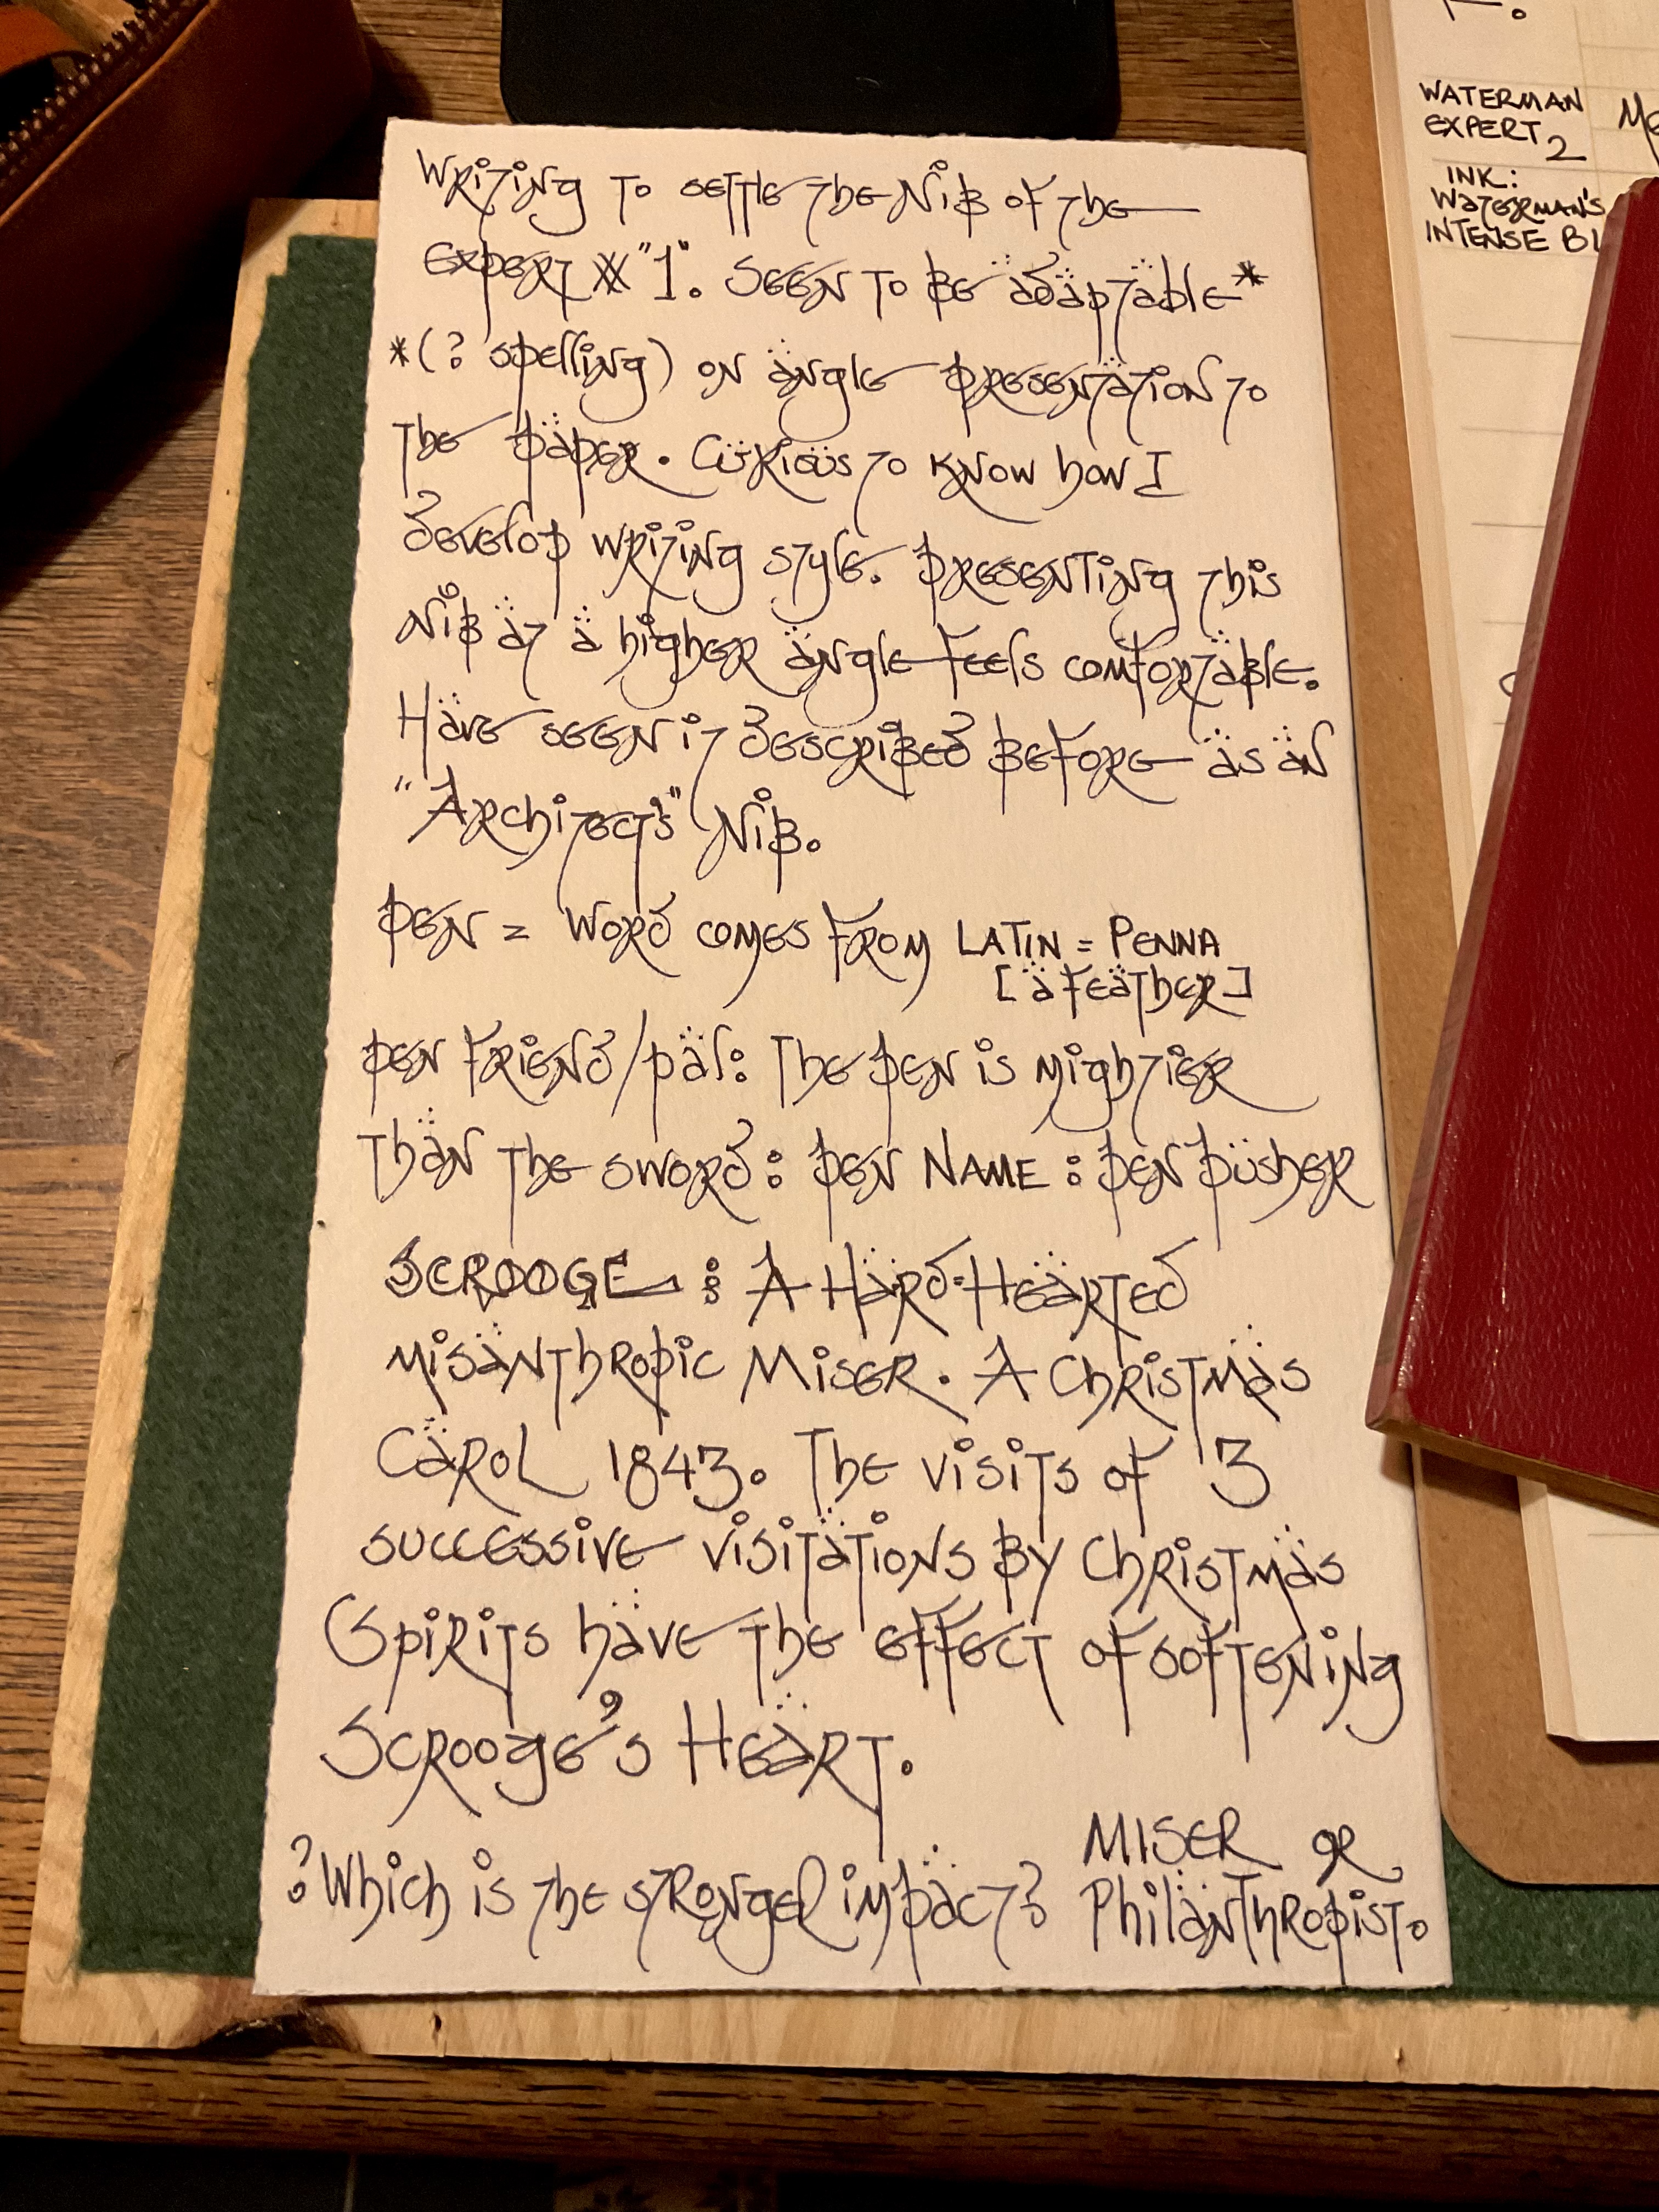 Writing to settle the Nib of the
Expert # "1". Seen to be adaptable*
*(? spelling) on angle presentation to
the paper. Curious to know how I
develop writing style. Presenting this
Nib at a higher angle feels comfortable.
Have seen it described before as an
"Architect's" Nib.
Pen = word comes from LATIN = PENNA
[a feather]
Pen friend/pal: The pen is mightier
than the sword: Pen NAME: Pen Pusher
SCROOGE: A Hard-Hearted
misanthropic Miser. A Christmas
Carol 1843. The visits of 3
successive visitations by Christmas
Spirits have the effect of softening
Scrooge's Heart.
?Which is the stronger impact? MISER or
Philanthropist.
WATERMAN
EXPERT 2
INK:
WATERMAN'S
INTENSE